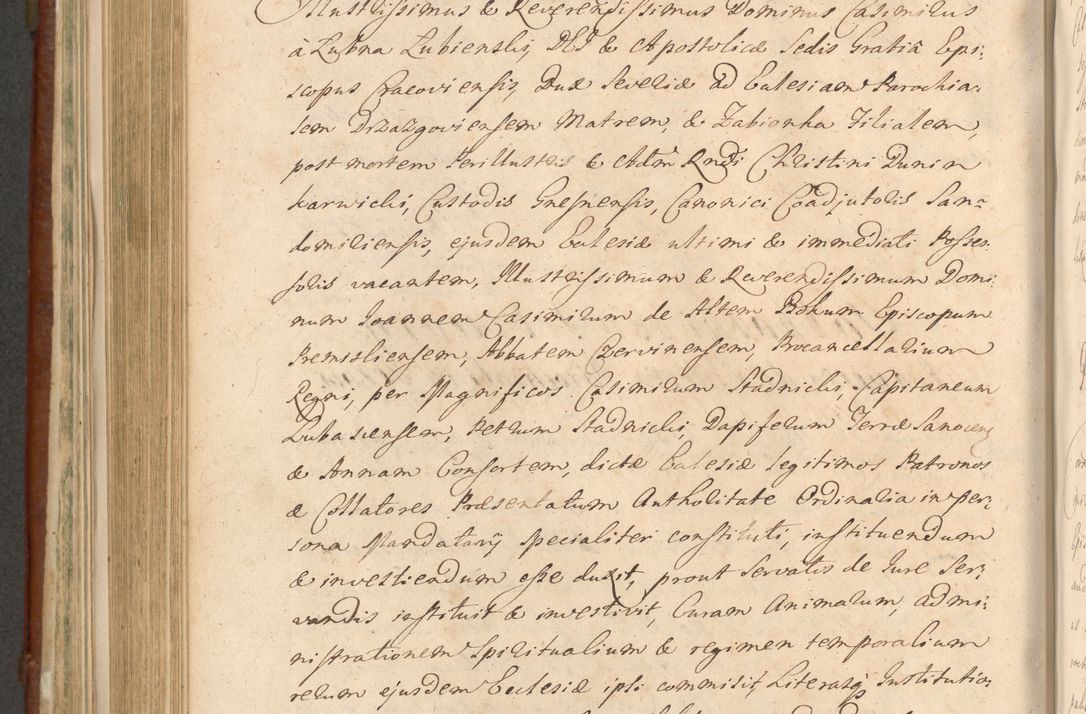 Illustrissimus & Reverendissimus Dominus Casimirus
à Lubna Lubienski, DEI & Apostolicæ Sedis Gratiâ Epi:
scopus Cracoviensis, Dux Severiæ ad Eclesiam Parochia:
lem Drzazgoviensem Matrem, & Zabionka Filialem,
post mortem Perillustris & Adm Rndi Christini Dunin
karwicki, Custodis Gnesnensis, Canonici Coadjutoris San:
domiriensis, ejusdem Eclesiæ ultimi & immediati Posses:
soris vacantem, Illustrissimum & Reverendissimum Domi:
num Joannem Casimirum de Altem Bokum Episcopum
Premisliensem, Abbatem Czervinensem, Procancellarium
Regni, per Magnificos Casimirum Stadnicki, Capitaneum
Lubascensem, Petrum Stadnicki, Dapiferum Terræ Sanocens
& Annam Consortem, dictæ Eclesiæ legitimos Patronos
& Collatores Præsentatum Authoritate Ordinaria in per:
sona Mandatarij specialiter constituti, instituendum
& investiendum esse duxit, prout servatis de Jure Ser:
vandis instituit & investivit, Curam Animarum, admi:
nistrationem Spiritualium & regimen temporalium
rerum ejusdem Ecclesiæ ipsi commisit, Literasq Institutio: